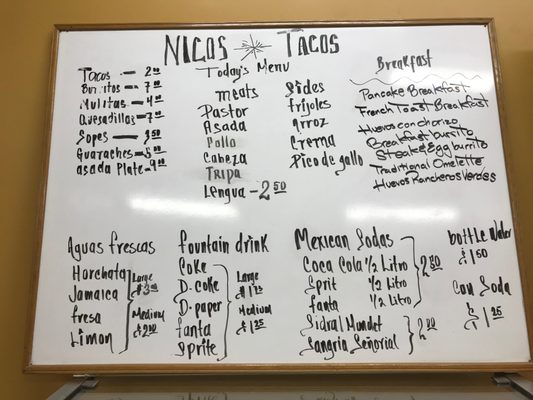 NICOS TACOS
Today's Menu
Tacos — 2.00
Burritos — 7.00
Mulitas — 4.00
Quesadillas — 7.00
Sopes — 3.50
Guaraches — 5.00
asada Plate — 9.00
meats
Pastor
Asada
Pollo
Cabeza
TRIPA
Lengua - 2.50
Sides
frijoles
arroz
Crema
Pico de gallo
Breakfast
Pancake Breakfast
French Toast Breakfast
Huevos con chorizo
Breakfast burrito
Steak & Egg burrito
Traditional Omelette
Huevos Rancheros Verdes
Aguas frescas
Horchata
Jamaica
fresa
Limon
Large
Medium
fountain drink
Coke
D. coke
D. paper
fanta
Sprite
Large
Medium
$1.25
Mexican Sodas
Coca Cola 1/2 Litro
Sprit 1/2 Litro
fanta 1/2 Litro
Sidral Mundet
Sangria Señorial
2.00
bottle Water
$1.50
Can Soda
$1.25